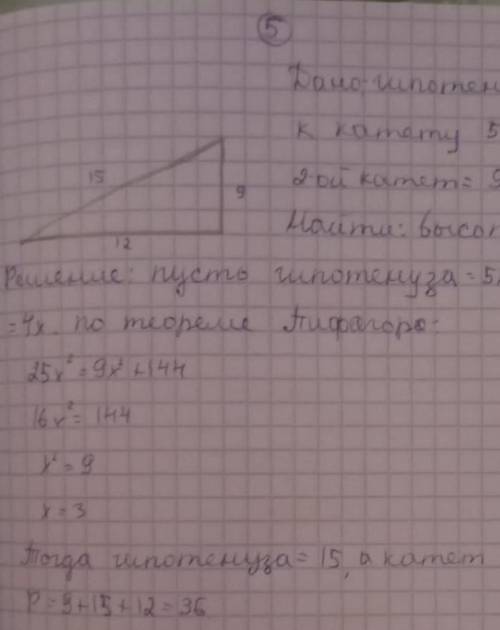 5
Дано: гипотен
к катету 5
2-ой катет = 9
15
9
12
Найти: высо
Решение: пусть гипотенуза = 5
= 4х. по теореме Пифагора:
25х² = 9х² + 144
16х² = 144
х² = 9
х = 3
Тогда гипотенуза = 15, а катет
Р = 9 + 15 + 12 = 36